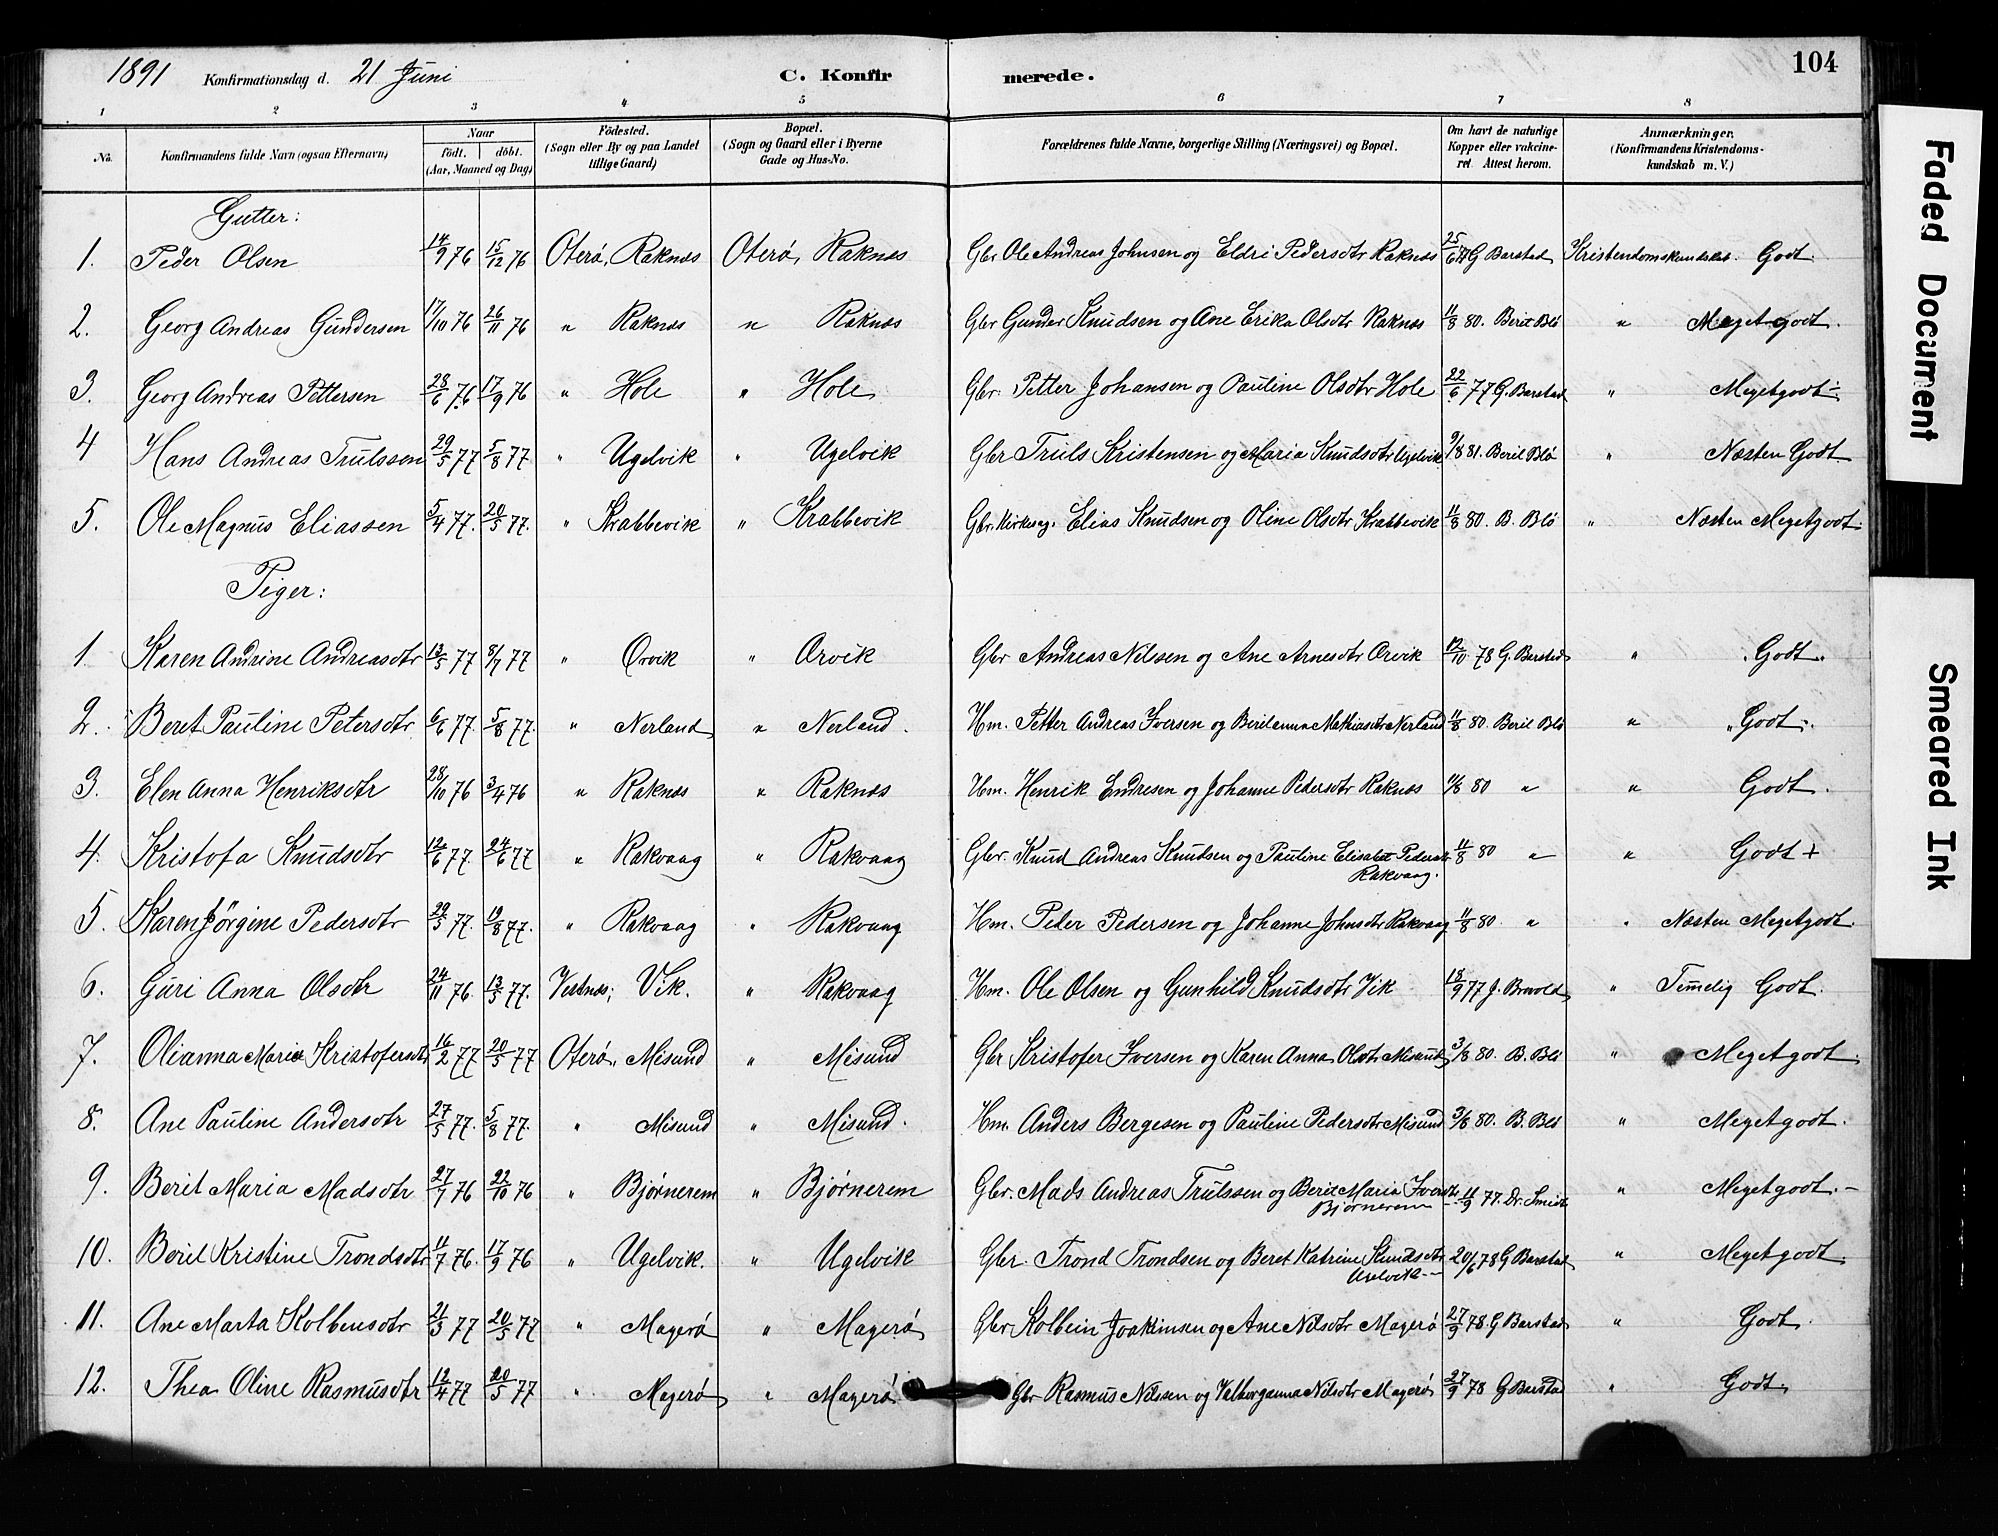 1891 Konfirmationsdag d. 21 Juni C. Konfir merede. 104
1 2 3 4 5 6 7 8
No. Konfirmandens fulde Navn (ogsaa Efternavn) Naar født. døbt. (Aar, Maaned og Dag) Fødested. (Sogn eller By og paa Landet tillige Gaard) Bopæl. (Sogn og Gaard eller i Byerne Gade og Hus-No. Forældrenes fulde Navne, borgerlige Stilling (Næringsvei) og Bopæl. Om havt de naturlige Kopper eller vakcineret. Attest herom. Anmærkninger. (Konfirmandens Kristendomskundskab m. V.)
Gutter:
1. Peder Olsen 14/9 76 15/12 76 Oterø, Raknæs Oterø, Raknæs Gbr Ole Andreas Johnsen og Eldri Pedersdtr Raknæs 25/6 77 G Barstad Kristendomskundskab. Godt.
2. Georg Andreas Gundersen 17/10 76 26/11 76 " Raknæs " Raknæs Gbr Gunder Knudsen og Ane Erika Olsdtr Raknæs 11/8 80. Berit Blø " Megetgodt.
3. Georg Andreas Pettersen 28/6 76 17/9 76 " Hole " Hole Gbr. Petter Johansen og Pauline Olsdtr Hole 22/6 77 G. Barstad " Megetgodt ÷
4 Hans Andreas Trulssen 29/5 77 5/8 77 " Ugelvik " Ugelvik Gbr Truls Kristensen og Maria Knudsdtr Ugelvik 9/8 81. Berit Blø " Næsten Godt.
5. Ole Magnus Eliassen 5/4 77. 20/5 77. " Krabbevik " Krabbevik Gbr. Kirkesg. Elias Knudsen og Oline Olsdtr Krabbevik 11/8 80. B. Blø " Næsten Megetgodt.
Piger:
1. Karen Andrine Andreasdtr 13/5 77 8/7 77 " Orvik " Orvik Gbr Andreas Nilsen og Ane Arnesdtr Orvik 12/10 78 G. Barstad " Godt.
2. Beret Pauline Petersdtr 6/6 77. 5/8 77. " Nerland " Nerland. Hm. Petter Andreas Iversen og Beritanna Mathiasdtr Nerland 11/8 80. Berit Blø " Godt.
3. Elen Anna Henriksdtr 28/10 76 3/4 76 " Raknæs " Raknæs Hm. Henrik Endresen og Johanne Pedersdtr Raknæs 11/8 80 " " Godt.
4. Kristofa Knudsdtr 12/6 77. 24/6 77 " Rakvaag " Rakvaag Gbr. Knud Andreas Knudsen og Pauline Elisabet Pedersdtr Rakvaag. 11/8 80 " " Godt +
5. Karen Jörgine Pedersdtr 29/5 77. 19/8 77. " Rakvaag " Rakvaag Hm. Peder Pedersen og Johanne Johnsdtr Rakvaag 11/8 80 " " Næsten Megetgodt.
6. Guri Anna Olsdtr 24/11 76. 13/5 77. Vestnæs; Vik. " Rakvaag Hm. Ole Olsen og Gunhild Knudsdtr Vik 18/9 77 " Temelig Godt.
7. Olianna Maria Kristofersdtr 16/2 77 20/5 77 Oterø, Misund " Misund Gbr Kristofer Iversen og Karen Anna Olsdtr Misund 3/8 80. B. Blø " Megetgodt.
8. Ane Pauline Andersdtr 27/5 77. 5/8 77. " Misund " Misund. Hm. Anders Bergesen og Pauline Pedersdtr Misund 3/8 80. B. Blø " Megetgodt.
9. Berit Maria Madsdtr 27/7 76 22/10 76 " Bjørnerem " Bjørnerem Gbr. Mads Andreas Trulssen og Berit Maria Iversdtr Bjørnerem 11/9 77. Dr. Smidt " Megetgodt. -
10. Beret Kristine Trondsdtr 11/7 76. 17/9 76 " Ugelvik. " Ugelvik Gbr. Trond Trondsen og Beret Katrine Knudsdtr Ugelvik 20/6 78 G Barstad " Megetgodt.
11. Ane Marta Kolbensdtr 21/3 77 20/5 77 " Magerø " Magerø Gbr Kolbein Joakimsen og Ane Nilsdtr Magerø 27/9 78. G Barstad " Godt.
12. Thea Oline Rasmusdtr 12/4 77 20/5 77 " Magerø " Magerø Gbr Rasmus Nilssen og Valborganna Nilsdtr Magerø 27/9 78 G Barstad " Godt.
Faded Document
Smeared Ink